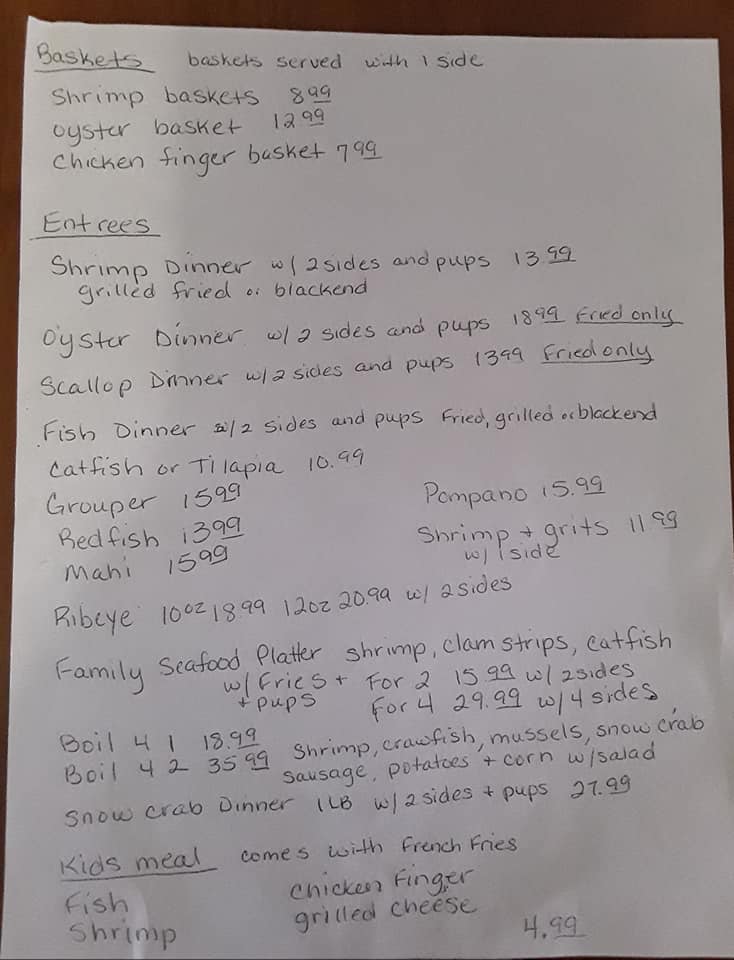 Baskets baskets served with 1 side
Shrimp baskets 8 99
oyster basket 12 99
Chicken finger basket 7 99
Entrees
Shrimp Dinner w/ 2 sides and pups 13.99
grilled fried or blackend
Oyster Dinner w/ 2 sides and pups 18 99 Fried only
Scallop Dinner w/ 2 sides and pups 13 99 Fried only
Fish Dinner w/ 2 sides and pups Fried, grilled or blackend
Catfish or Tilapia 10.99
Grouper 15 99
Pompano 15.99
Redfish 13 99
Shrimp + grits 11 99
w/ 1 side
Mahi 15 99
Ribeye 10oz 18.99 12oz 20.99 w/ 2 sides
Family Seafood Platter shrimp, clam strips, catfish
w/ Fries + For 2 15.99 w/ 2 sides
+ pups For 4 29.99 w/ 4 sides
Boil 4 1 18.99
Boil 4 2 35 99 Shrimp, crawfish, mussels, snow crab
sausage, potatoes + corn w/ salad
Snow crab Dinner 1 LB w/ 2 sides + pups 27.99
Kids meal comes with French Fries
Fish Chicken Finger
Shrimp grilled cheese
4.99